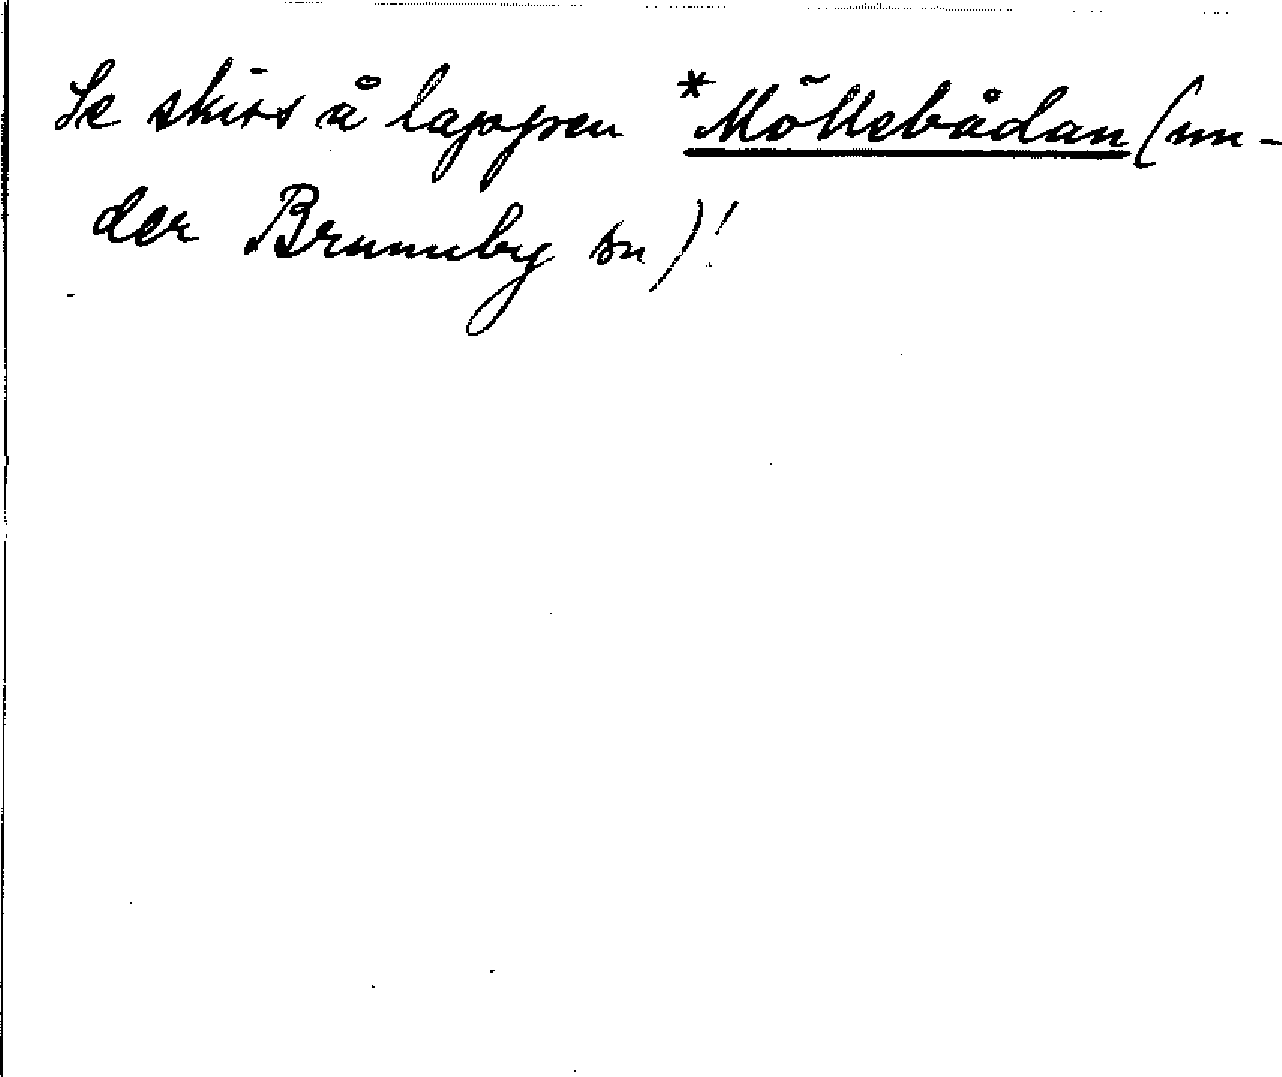 Se skiss å lappen *Möllebådan (un-
der Brunnby sn)!